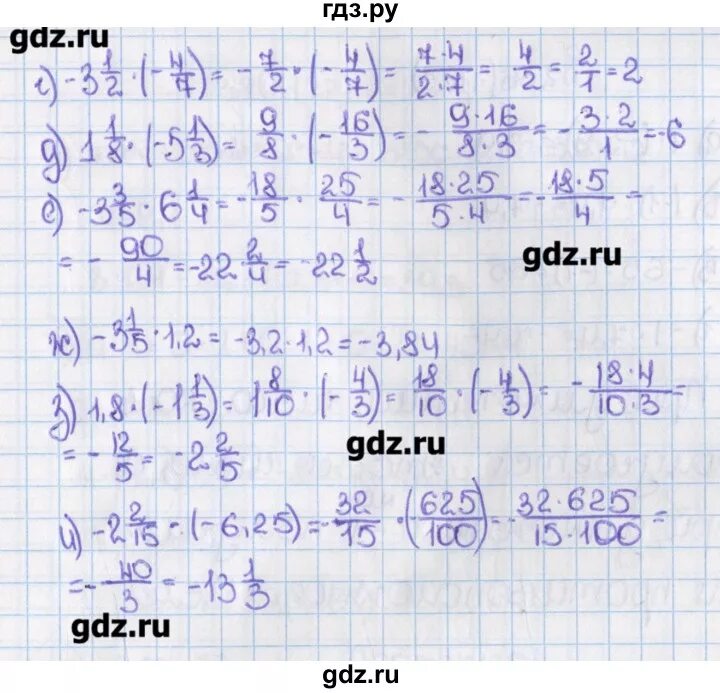 гдз.ру
gdz.ru
г) -3 1/2 · (-4/7) = -7/2 · (-4/7) = 7·4/2·7 = 4/2 = 2/1 = 2
д) 1 1/8 · (-5 1/3) = 9/8 · (-16/3) = -9·16/8·3 = -3·2/1 = -6
е) -3 3/5 · 6 1/4 = -18/5 · 25/4 = -18·25/5·4 = -18·5/4 =
= -90/4 = -22 2/4 = -22 1/2
gdz.ru
ж) -3 1/5 · 1,2 = -3,2 · 1,2 = -3,84
з) 1,8 · (-1 1/3) = 1 8/10 · (-4/3) = 18/10 · (-4/3) = -18·4/10·3 =
= -12/5 = -2 2/5
gdz.ru
и) -2 2/15 · (-6,25) = -32/15 · (-625/100) = -32·625/15·100 =
= -40/3 = -13 1/3
gdz.ru
gdz.ru